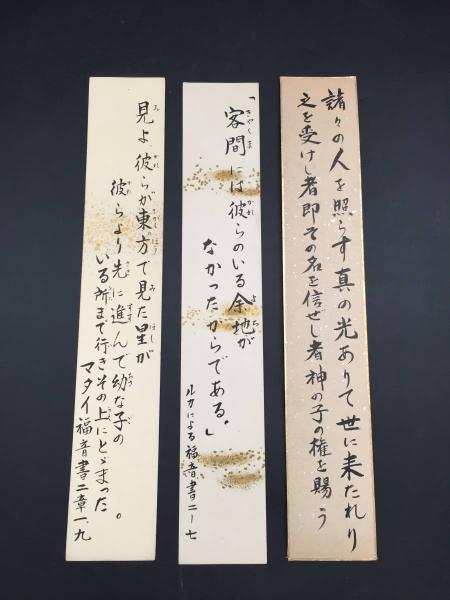 諸々の人を照らす真の光ありて世に来たれり
之を受けし者即その名を信ぜし者神の子の権を賜う
「客間には彼らのいる余地が
なかったからである。」
ルカによる福音書二ー七
見よ、彼らが東方で見た星が
彼らより先に進んで幼な子の
いる所まで行きその上にとゞまった。
マタイ福音書二章一、九